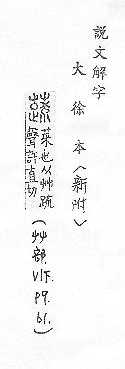 說文解字
大徐本〈新附〉
蔬 菜也从艸疏
聲 切
(艸部. VI下. P9. b1.)